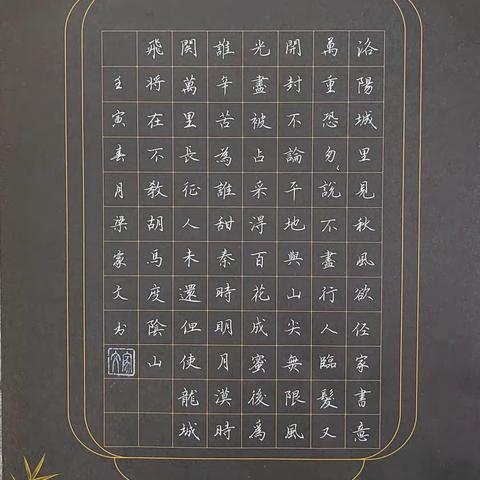 洛陽城里見秋風欲作家書意
萬重恐匆〻說不盡行人臨髮又
開封不論平地與山尖無限風
光盡被占采得百花成蜜後為
誰辛苦為誰甜秦時明月漢時
関萬里長征人未還但使龍城
飛將在不教胡馬度陰山
壬寅春月梁家文书